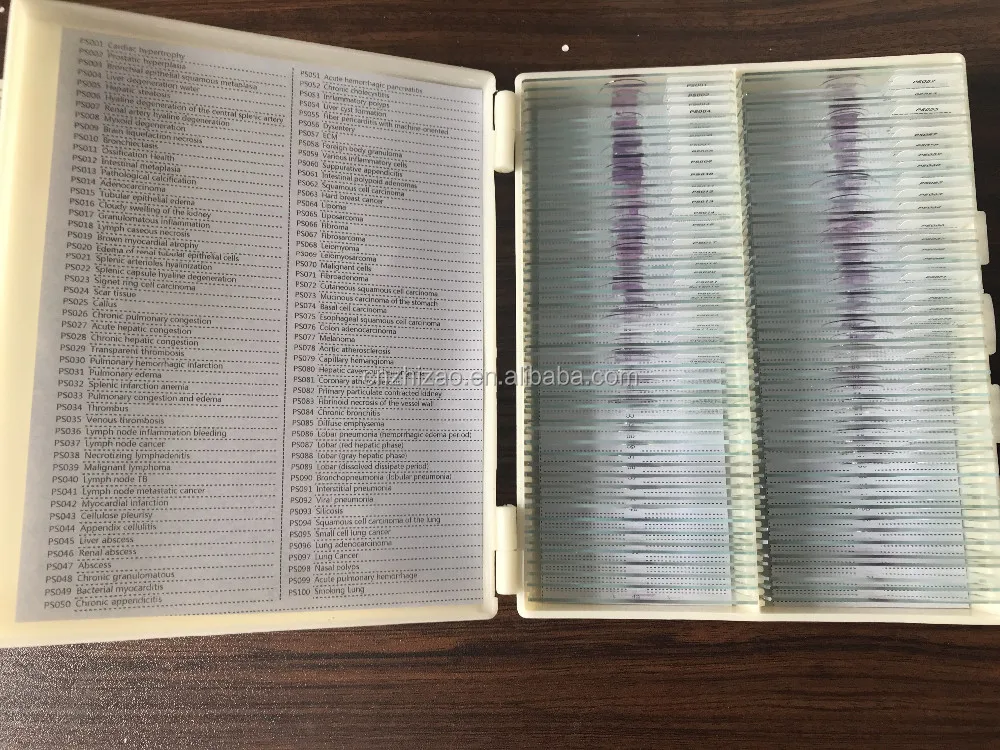 PS001 Cardiac hypertrophy
PS002 Prostatic hyperplasia
PS003 Bronchial epithelial squamous metaplasia
PS004 Liver degeneration water
PS005 Hepatic steatosis
PS006 Hyaline degeneration of the central splenic artery
PS007 Renal artery hyaline degeneration
PS008 Myxoid degeneration
PS009 Brain liquefaction necrosis
PS010 Bronchiectasis
PS011 Ossification Health
PS012 Intestinal metaplasia
PS013 Pathological calcification
PS014 Adenocarcinoma
PS015 Tubular epithelial edema
PS016 Cloudy swelling of the kidney
PS017 Granulomatous inflammation
PS018 Lymph caseous necrosis
PS019 Brown myocardial atrophy
PS020 Edema of renal tubular epithelial cells
PS021 Splenic arterioles hyalinization
PS022 Splenic capsule hyaline degeneration
PS023 Signet ring cell carcinoma
PS024 Scar tissue
PS025 Callus
PS026 Chronic pulmonary congestion
PS027 Acute hepatic congestion
PS028 Chronic hepatic congestion
PS029 Transparent thrombosis
PS030 Pulmonary hemorrhagic infarction
PS031 Pulmonary edema
PS032 Splenic infarction anemia
PS033 Pulmonary congestion and edema
PS034 Thrombus
PS035 Venous thrombosis
PS036 Lymph node inflammation bleeding
PS037 Lymph node cancer
PS038 Necrotizing lymphadenitis
PS039 Malignant lymphoma
PS040 Lymph node TB
PS041 Lymph node metastatic cancer
PS042 Myocardial infarction
PS043 Cellulose pleurisy
PS044 Appendix cellulitis
PS045 Liver abscess
PS046 Renal abscess
PS047 Abscess
PS048 Chronic granulomatous
PS049 Bacterial myocarditis
PS050 Chronic appendicitis
PS051 Acute hemorrhagic pancreatitis
PS052 Chronic cholecystitis
PS053 Inflammatory polyps
PS054 Liver cyst formation
PS055 Fiber pericarditis with machine oriented
PS056 Dysentery
PS057 ECM
PS058 Foreign body granuloma
PS059 Various inflammatory cells
PS060 Suppurative appendicitis
PS061 Intestinal polypoid adenomas
PS062 Squamous cell carcinoma
PS063 Hard breast cancer
PS064 Lipoma
PS065 Liposarcoma
PS066 Fibroma
PS067 Fibrosarcoma
PS068 Leiomyoma
PS069 Leiomyosarcoma
PS070 Malignant cells
PS071 Fibroadenoma
PS072 Cutaneous squamous cell carcinoma
PS073 Mucinous carcinoma of the stomach
PS074 Basal cell carcinoma
PS075 Esophageal squamous cell carcinoma
PS076 Colon adenocarcinoma
PS077 Melanoma
PS078 Aortic atherosclerosis
PS079 Capillary hemangioma
PS080 Hepatic
PS081 Coronary
PS082 Primary particulate contracted kidney
PS083 Fibrinoid necrosis of the vessel wall
PS084 Chronic bronchitis
PS085 Diffuse emphysema
PS086 Lobar pneumonia (hemorrhagic edema period)
PS087 Lobar (red hepatic phase)
PS088 Lobar (gray hepatic phase)
PS089 Lobar (dissolved dissipate period)
PS090 Bronchopneumonia (lobular pneumonia)
PS091 Interstitial pneumonia
PS092 Viral pneumonia
PS093 Silicosis
PS094 Squamous cell carcinoma of the lung
PS095 Small cell lung cancer
PS096 Lung adenocarcinoma
PS097 Lung Cancer
PS098 Nasal polyps
PS099 Acute pulmonary hemorrhage
PS100 Smoking Lung
cnzhizao.en.alibaba.com